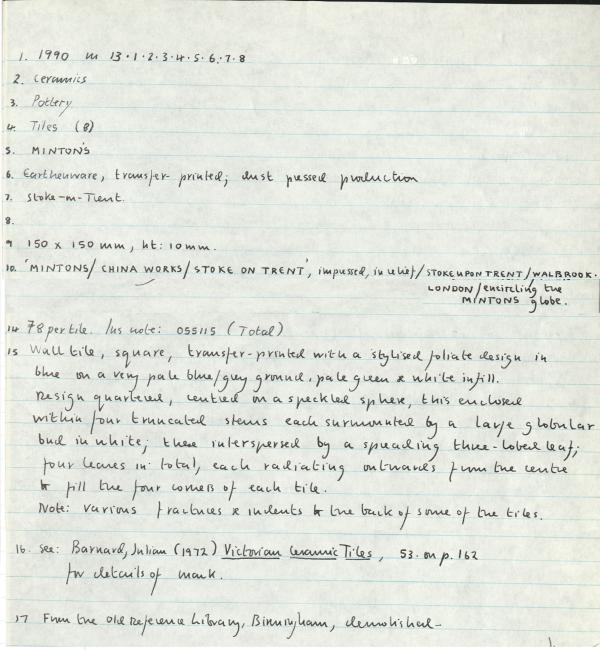 1. 1990 M 13.1.2.3.4.5.6.7.8
2. Ceramics
3. Pottery
4. Tiles (8)
5. MINTON'S
6. Earthenware, transfer-printed; dust pressed production
7. Stoke-on-Trent.
8.
9 150 x 150 mm, ht: 10mm.
10. 'MINTONS/ CHINA WORKS/ STOKE ON TRENT', impressed, in relief/ STOKE UPON TRENT/ WALBROOK.
LONDON/ encircling the
MINTONS globe.
14 78 per tile. Ins note: 055115 (Total)
15 Wall tile, square, transfer-printed with a stylised foliate design in
blue on a very pale blue/grey ground, pale green & white infill.
Design quartered, centred on a speckled sphere, this enclosed
within four truncated stems each surmounted by a large globular
bud in white; these interspersed by a spreading three-lobed leaf;
four leaves in total, each radiating outwards from the centre
to fill the four corners of each tile.
Note: various fractures & indents to the back of some of the tiles.
16. See: Barnard, Julian (1972) Victorian Ceramic Tiles, 53. on p.162
for details of mark.
17 From the Old Reference Library, Birmingham, demolished-
1.